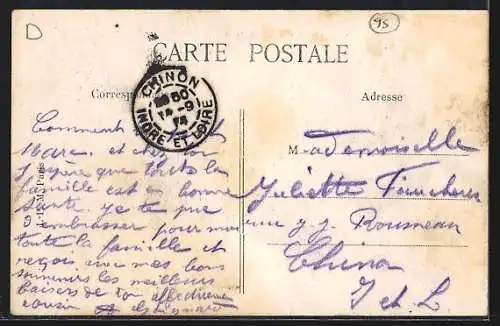 D
95
CARTE POSTALE
Correspondance
Adresse
CHINON
14 - 9
INDRE ET LOIRE
Comment
Marc. et chez toi
J'espère que toute la
famille est en bonne
santé. je te prie
d'embrasser pour moi
toute la famille et
reçois avec mes bons
souvenirs les meilleurs
baisers de ton
cousin
Mademoiselle
Juliette
rue J. J. Rousseau
Chinon
I et L.